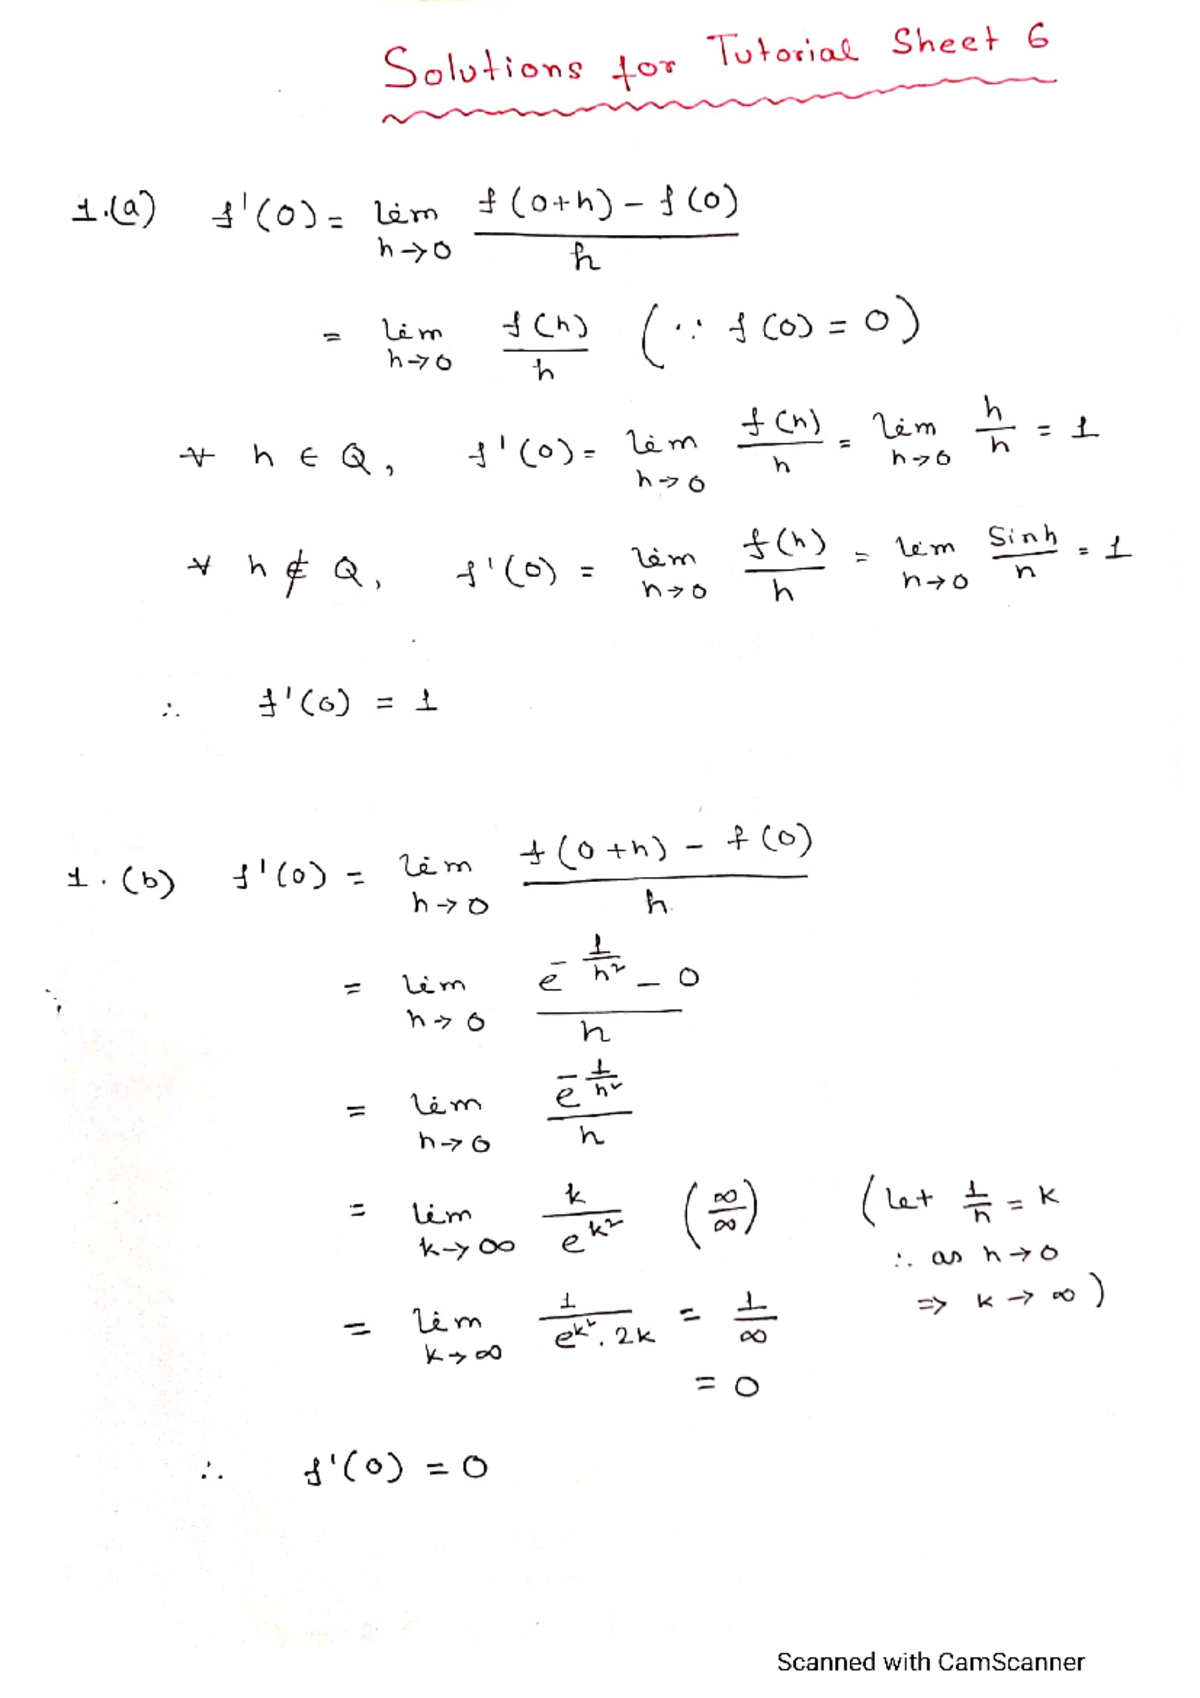 Solutions for Tutorial Sheet 6
1.(a) f'(0) = lim_{h→0} \frac{f(0+h) - f(0)}{h}
= lim_{h→0} \frac{f(h)}{h} (∵ f(0) = 0)
∀ h ∈ Q, f'(0) = lim_{h→0} \frac{f(h)}{h} = lim_{h→0} \frac{h}{h} = 1
∀ h ∉ Q, f'(0) = lim_{h→0} \frac{f(h)}{h} = lim_{h→0} \frac{Sinh}{h} = 1
∴ f'(0) = 1
1.(b) f'(0) = lim_{h→0} \frac{f(0+h) - f(0)}{h}
= lim_{h→0} \frac{e^{-\frac{1}{h^2}} - 0}{h}
= lim_{h→0} \frac{e^{-\frac{1}{h^2}}}{h}
= lim_{k→∞} \frac{k}{e^{k^2}} (\frac{∞}{∞}) (Let \frac{1}{h} = k
∴ as h→0
⇒ k→∞)
= lim_{k→∞} \frac{1}{e^{k^2}.2k} = \frac{1}{∞}
= 0
∴ f'(0) = 0
Scanned with CamScanner